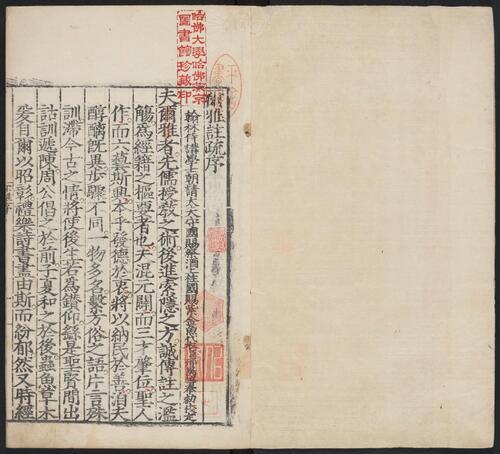 哈佛大學哈佛燕京
圖書館珍藏印
爾雅註疏序
翰林侍講學士朝請大夫守國子祭酒上柱國賜紫金魚袋臣邢昺等奉勑校定
夫爾雅者先儒授敎之術後進索隱之方誠傳註之濫
觴爲經籍之樞要者也夫混元闢而三才肇位聖人
作而六藝斯興本乎發德於衷將以納民於善洎夫
醇醨旣異步驟不同一物多名繫方俗之語片言殊
訓滯今古之情將使後生若爲鑽仰繇是聖賢間出
詁訓遞陳周公倡之於前子夏和之於後蟲魚草木
爰自爾以昭彰禮樂詩書盡由斯而紛郁然又時經